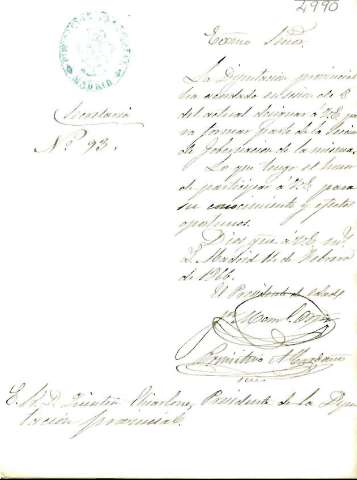 4990
Excmo Señor
La Diputación provincial
ha acordado en sesión de 8
del actual designar á V.E. pa
ra formar parte de la
de Gobernación de la misma.
Lo que tengo el honor
de participar á V.E. para
su conocimiento y efectos
oportunos.
Dios gue á V.E. ms. as.
Madrid 14 de Febrero
de 1916.
El Presidente
Secretaría
Nº 93.
E. S. D. Presidente de la Dipu
tación provincial.